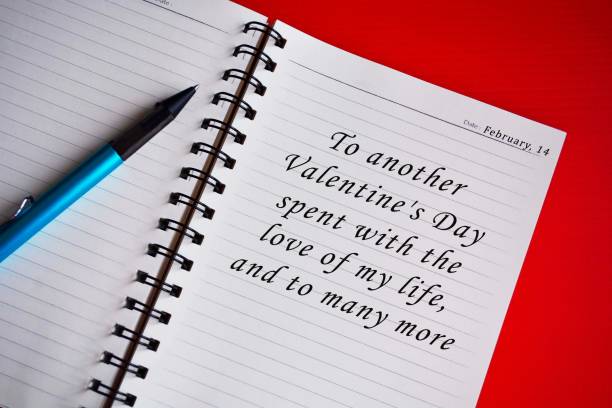 Date :
Date : February, 14
To another
Valentine's Day
spent with the
love of my life,
and to many more